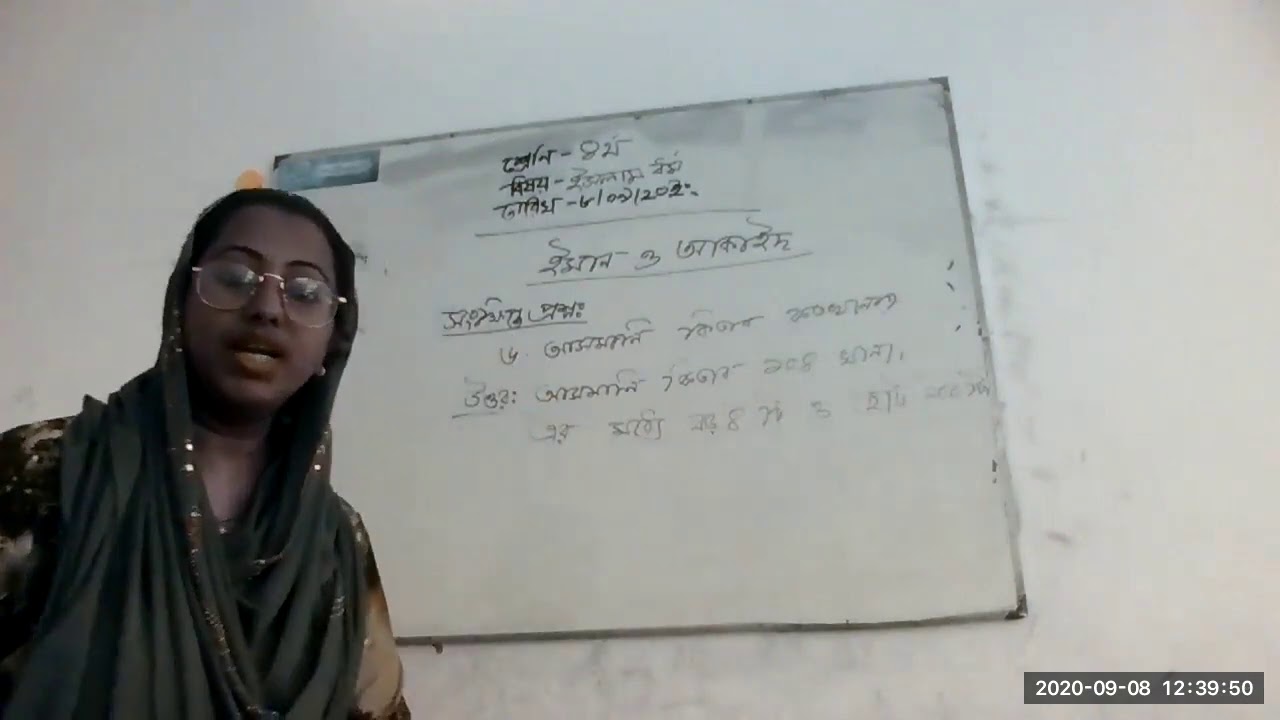 শ্রেনি - ৪র্থ
বিষয় - ইসলাম ধর্ম
তারিখ - ৮/০৯/২০২০
ইমান ও আকাইদ
সংক্ষিপ্ত প্রশ্ন:
৬. আসমানি কিতাব কতখানা?
উত্তর: আসমানি কিতাব ১০৪ খানা।
এর মধ্যে বড় ৪ টি ও ছোট ১০০টি
2020-09-08 12:39:50